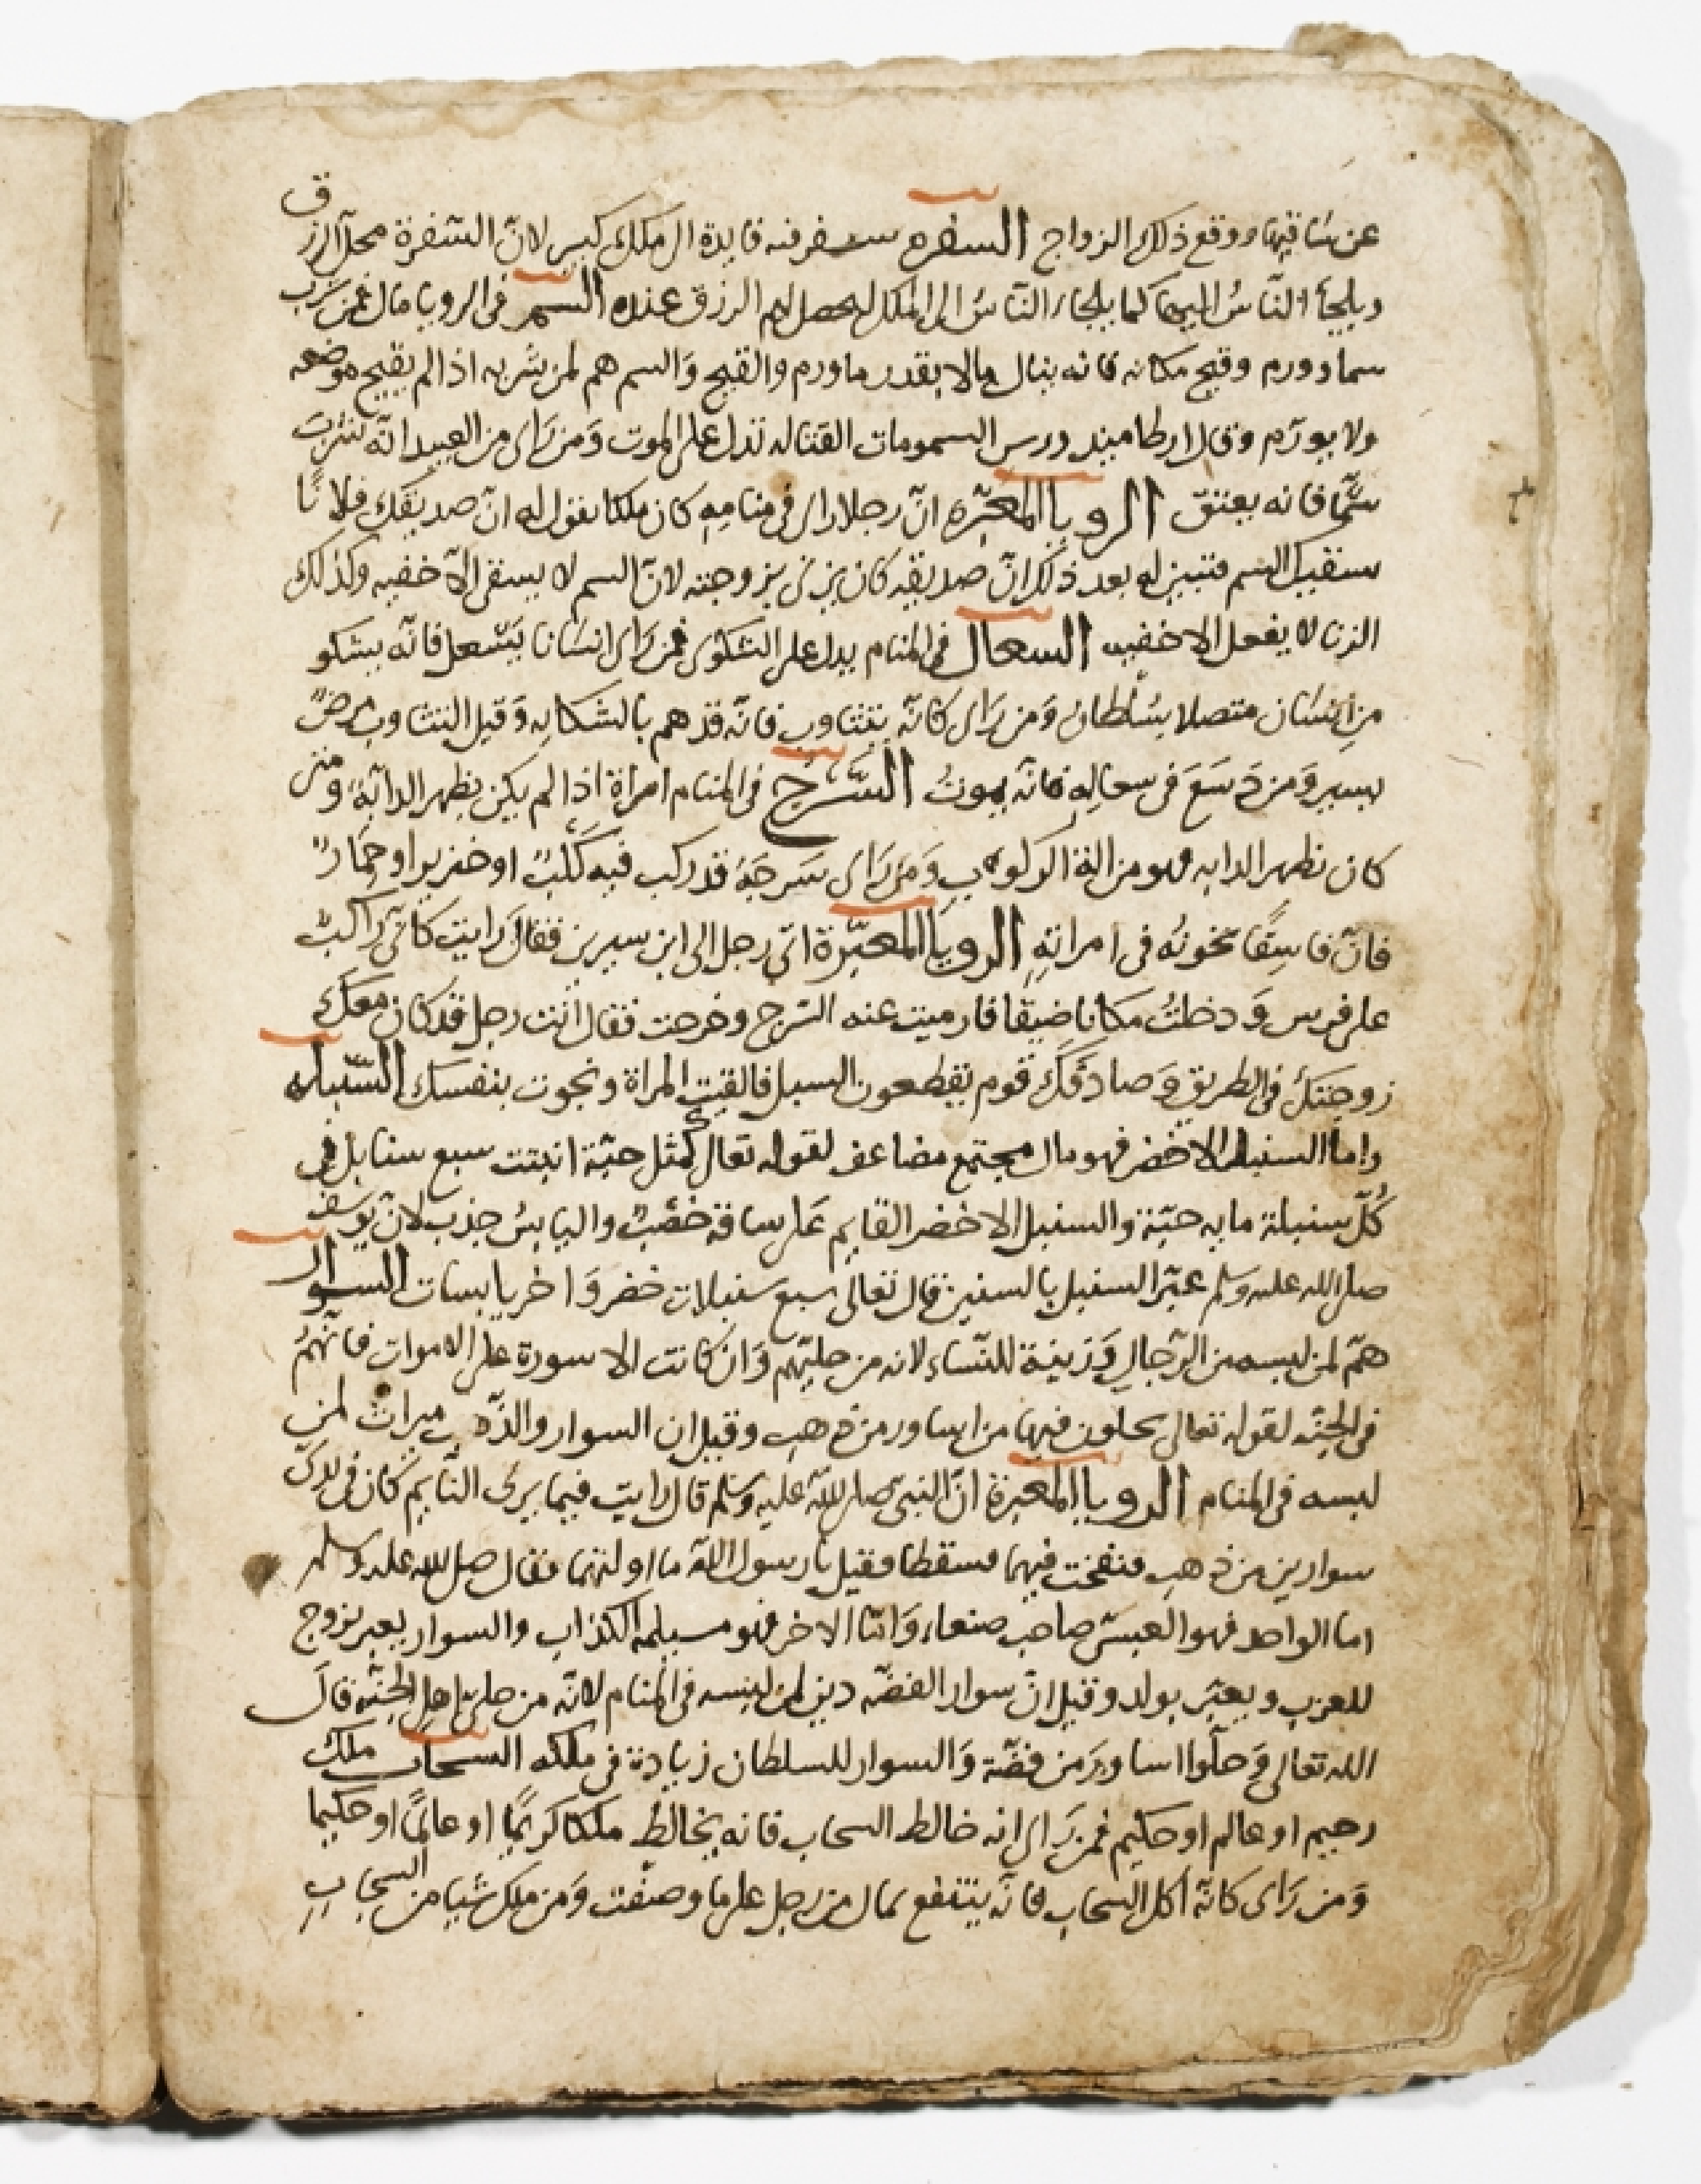 عن ساقيها ووقع ذلك الزواج السفره سفر فيه فايدة الى ملك كبير لانّ السّفرة محلّ الرزق
ويلجأ النّاسُ اليها كما يلجاء النّاسُ الى الملك ليحصل لهم الرزق عنده السم فى الرويا مال فمن شرب
سما وورم وقيح مكانه فانه ينال مالا بقدر ما ورم والقيح وَالسم هم لمن شربه اذا لم يقيح موضعه
ولا يورّم وقال ارطاميدورس السمومات القتاله تدل على الموت وَمن رَاى من العبيد انّه شرب
سُمّا فانه يعتق الرويا المعبّره انّ رجلا راى فى منامه كان ملكا يقول له انّ صديقك فلانًا
سقيك السم فتبين له بعد ذلك انّ صديقه كان يزنى بزوجته لانّ السم لا يسقى الاّ خفيه وكذلك
الزنا لا يفعل الا خفيه السعال فى المنام يدل على الشكوى فمن رَاى انسَانا يَسعل فانّه يشكو
من انسَان متصلا بسُلطان وَمن رَاى كانّه يتثاوب فانّه قد هم بالشكايه وَقيل التثاوب مرضٌ
يسير وَمن دَسَعَ فى سعاله فانّه يموتُ السَّرج فى المنام امراة اذا لم يكن بظهر الدابّة ومتى
كان بظهر الدابه فهو من الة الركوب وَمن رَاى سَرجَهُ قد ركب فيه كَلبٌ او خنزير او حمَارٌ
فانّ فاسِقًا يخونهُ فى امراتهِ الرويَا المعبّرة اتى رجل الى ابن سيرين فقال رَايت كانّى رَاكبٌ
على فرس وَدخلتُ مكانا ضيقا فارميت عنه السّرج وخرجت فقال انت رجل قد كان معك
زوجتكَ فى الطريق وَصادفكَ قوم يقطعون السبيل فالقيت المراة ونجوت بنفسكَ السّنبله
واما السنبل الاخضر فهو مال مجتمع مضاعف لقوله تعالى كمثل حبّة انبتت سبع سنابل فى
كُلّ سنبلة مايه حبّة والسنبل الاخضر القايم عَلى ساقه خصْبٌ واليابسُ جذب لانّ يوسف
صلى الله عليه وسلم عبّر السنبل بالسنين قال تعالى سبع سنبلات خضر وَاخر يابسات السوار
همّ لمن لبسه من الرّجال وَزينة للنّساء لانه من حليّهم وَان كانت الاسورة على الاموات فانّهمُ
فى الجنّه لقوله تعالى يحلون فيها من اساور من ذهب وقيل ان السوار والذّهب ميراث لمن
لبسه فى المنام الرويا المعبرة انّ النبىّ صلى اللّه عليه وسلم قال رايت فيما يرى النّايم كان فى يدىّ
سوارين من ذهب فنفخت فيهما فسقطا فقيل يا رسول اللّه ما اولتهما فقال صلى الله عليه وسلم
اما الواحد فهو العبسىّ صاحب صنعاء وَامّا الاخر فهو مسيلمه الكذاب والسوار يعبر بزوج
للعزب ويعبّر بولد وقيل انّ سوار الفضّه دين لمن لبسه فى المنام لانّه من حلى اهل الجنّه قالَ
الله تعالى وَحلّوا اساورَ من فضّة وَالسوار للسلطان زيادة فى ملكه السحاب ملك
رحيم او عالم او حكيم فمن رَاى انه خالط السحاب فانه يخالطُ ملكا كريمًا او عالمًا او حكيما
وَمن رَاى كانّه اكل السحاب فانّه ينتفع بمال من رجل على ما وصفت وَمن ملك شيا من السحابِ